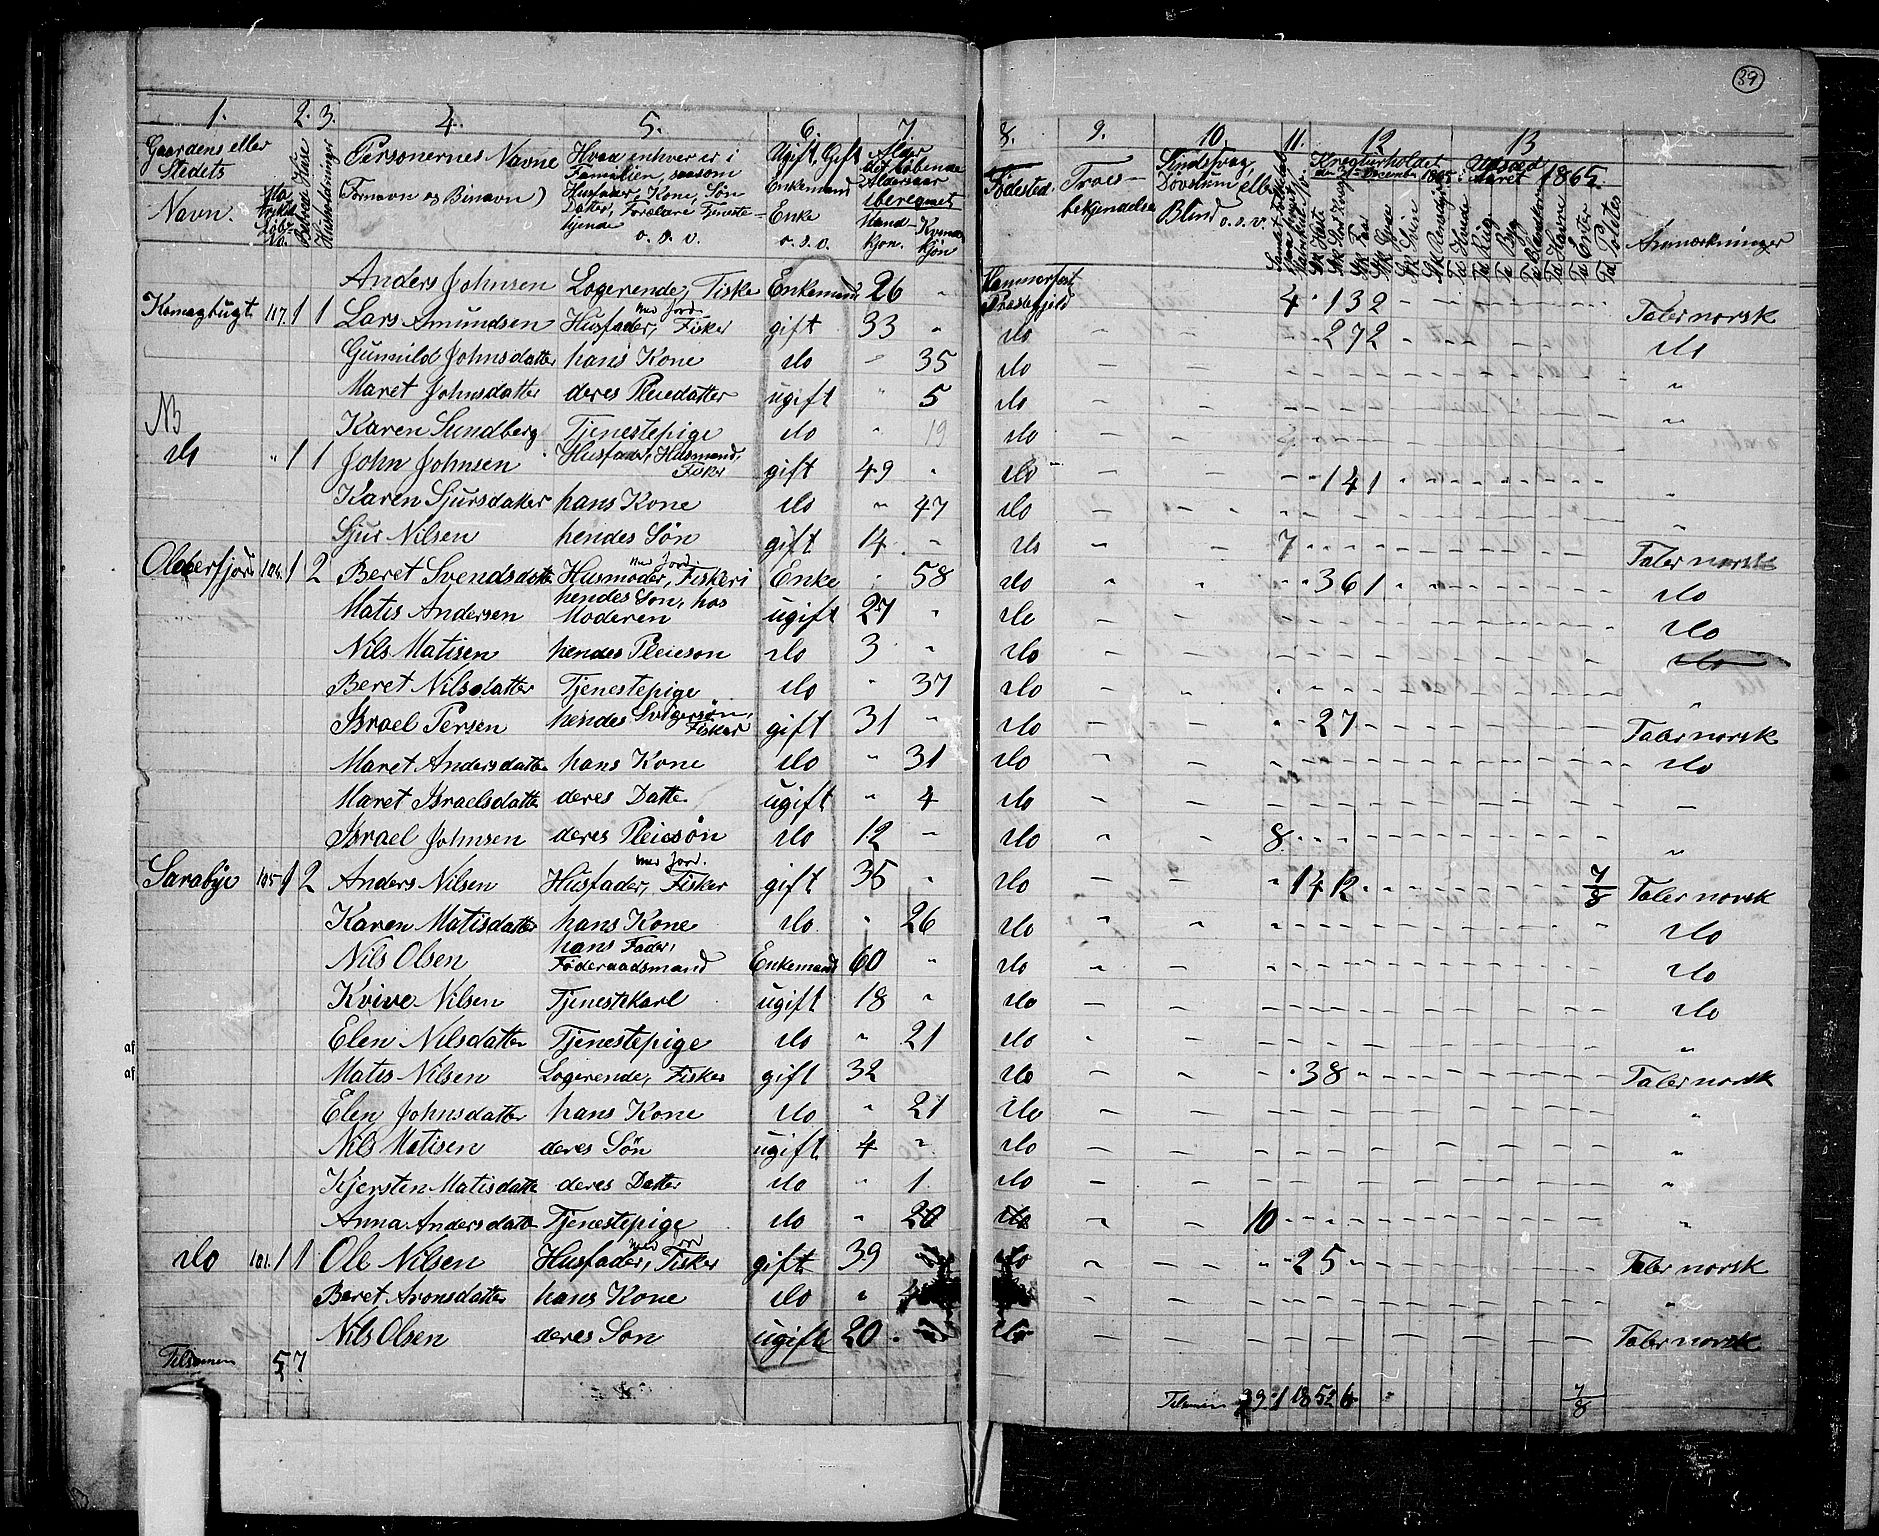 39
1. 2. 3. 4. 5. 6. 7. 8. 9. 10. 11. 12 13
Gaardens eller Stedets Navn.
Matrikul Løbe No.
Beboede Huse
Huusholdninger
Personernes Navne (Fornavn og Binavn)
Hvad enhver er i Familien, saasom Husfader, Kone, Søn Datter, Forældre Tjenestetjende o. s. v.
Ugift, Gift Enkemand Enke o. s. v.
Alder det løbende Aldersaar iberegnet
Mandkjøn. Kvindekjøn
Fødested.
Troesbekjendelse
Sindssvag, Døvstum eller Blind o. s. v.
Kreaturholdet den 31te December 1865
Udsæd Aaret 1865.
Anmærkninger
Anders Johnsen Logerende, Fisker Enkemand 26 " Hammerfest Præstegjeld 4 - 132 - - Taler norsk
Kamagbugt 117. 1 1 Lars Amundsen Husfader, med Jord Fisker gift 33 " do 272 do
Gunnild Johnsdatter hans Kone do " 35 do "
Maret Johnsdatter deres Pleiedatter ugift " 5 do "
NB Karen Sundberg Tjenestepige do " 19 do
do " 1 1 John Johnsen Husfader, Husmand, Fisker gift 49 " do 141 "
Karen Sjursdatter hans Kone do " 47 do "
Sjur Nilsen hendes Søn gift 14 " do 7 Taler norsk
Olderfjord 104. 1 2 Beret Svendsdatter Husmoder, med Jord Fiskeri Enke " 58 do 361 do
Matis Andersen hendes Søn, hos Moderen ugift 27 " do do
Nils Matisen hendes Pleieson do 3 " do do
Beret Nilsdatter Tjenestepige do " 37 do "
Israel Persen hendes Svigersøn, Fisker gift 31 " do 27 Taler norsk
Maret Andersdatter hans Kone do " 31 do do
Maret Israelsdatter deres Datter ugift " 4 do -
Israel Johnsen deres Pleiesøn do 12 " do 8 "
Sarabye 105 1 2 Anders Nilsen Husfader, med Jord. Fisker gift 35 " do 1412 7/8 Taler norsk
Karen Matisdatter hans Kone do " 26 do do
Nils Olsen hans Fader, Føderaadsmand Enkemand 60 " do do
Kvive Nilsen Tjenestekarl ugift 18 " do do
Elen Nilsdatter Tjenestepige do " 21 do "
Matis Nilsen Logerende, Fisker gift 32 do 38 Taler norsk
Elen Johnsdatter hans Kone do " 21 do "
Nils Matisen deres Søn ugift 4 " do "
Kjersten Matisdatter deres Datter do " 1 do "
Anna Andersdatter Tjenestepige do " 20 do 10 "
do 101. 1 1 Ole Nilsen Husfader, med Jord Fisker gift 39 do 25 Taler norsk
Beret Aronsdatter hans Kone do " "
Nils Olsen deres Søn ugift 20 do Taler norsk
Tilsammen 5 7
Tilsammen 29 1 18 52 6 " 7/8
af
af